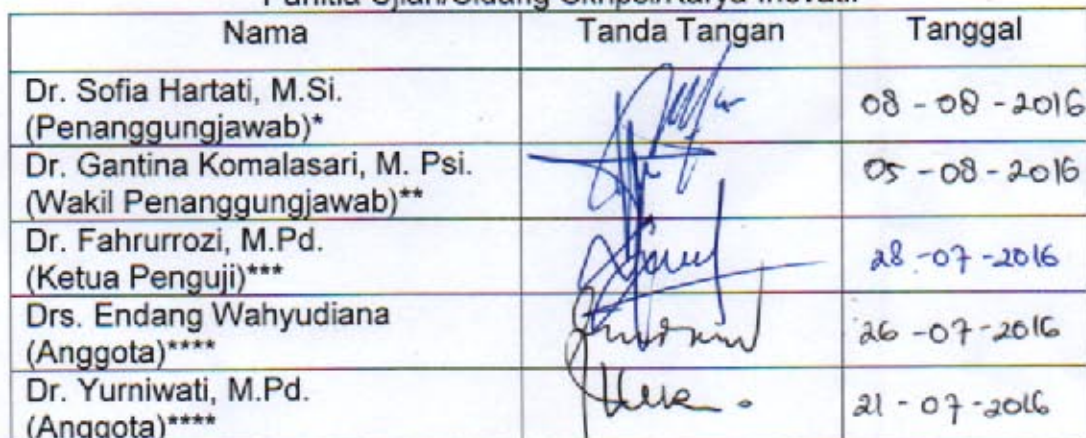 Panitia Ujian/Sidang Skripsi/Karya Inovatif
Nama Tanda Tangan Tanggal
Dr. Sofia Hartati, M.Si.
(Penanggungjawab)* 08 - 08 - 2016
Dr. Gantina Komalasari, M. Psi.
(Wakil Penanggungjawab)** 05 - 08 - 2016
Dr. Fahrurrozi, M.Pd.
(Ketua Penguji)*** 28 - 07 - 2016
Drs. Endang Wahyudiana
(Anggota)**** 26 - 07 - 2016
Dr. Yurniwati, M.Pd.
(Anggota)**** 21 - 07 - 2016